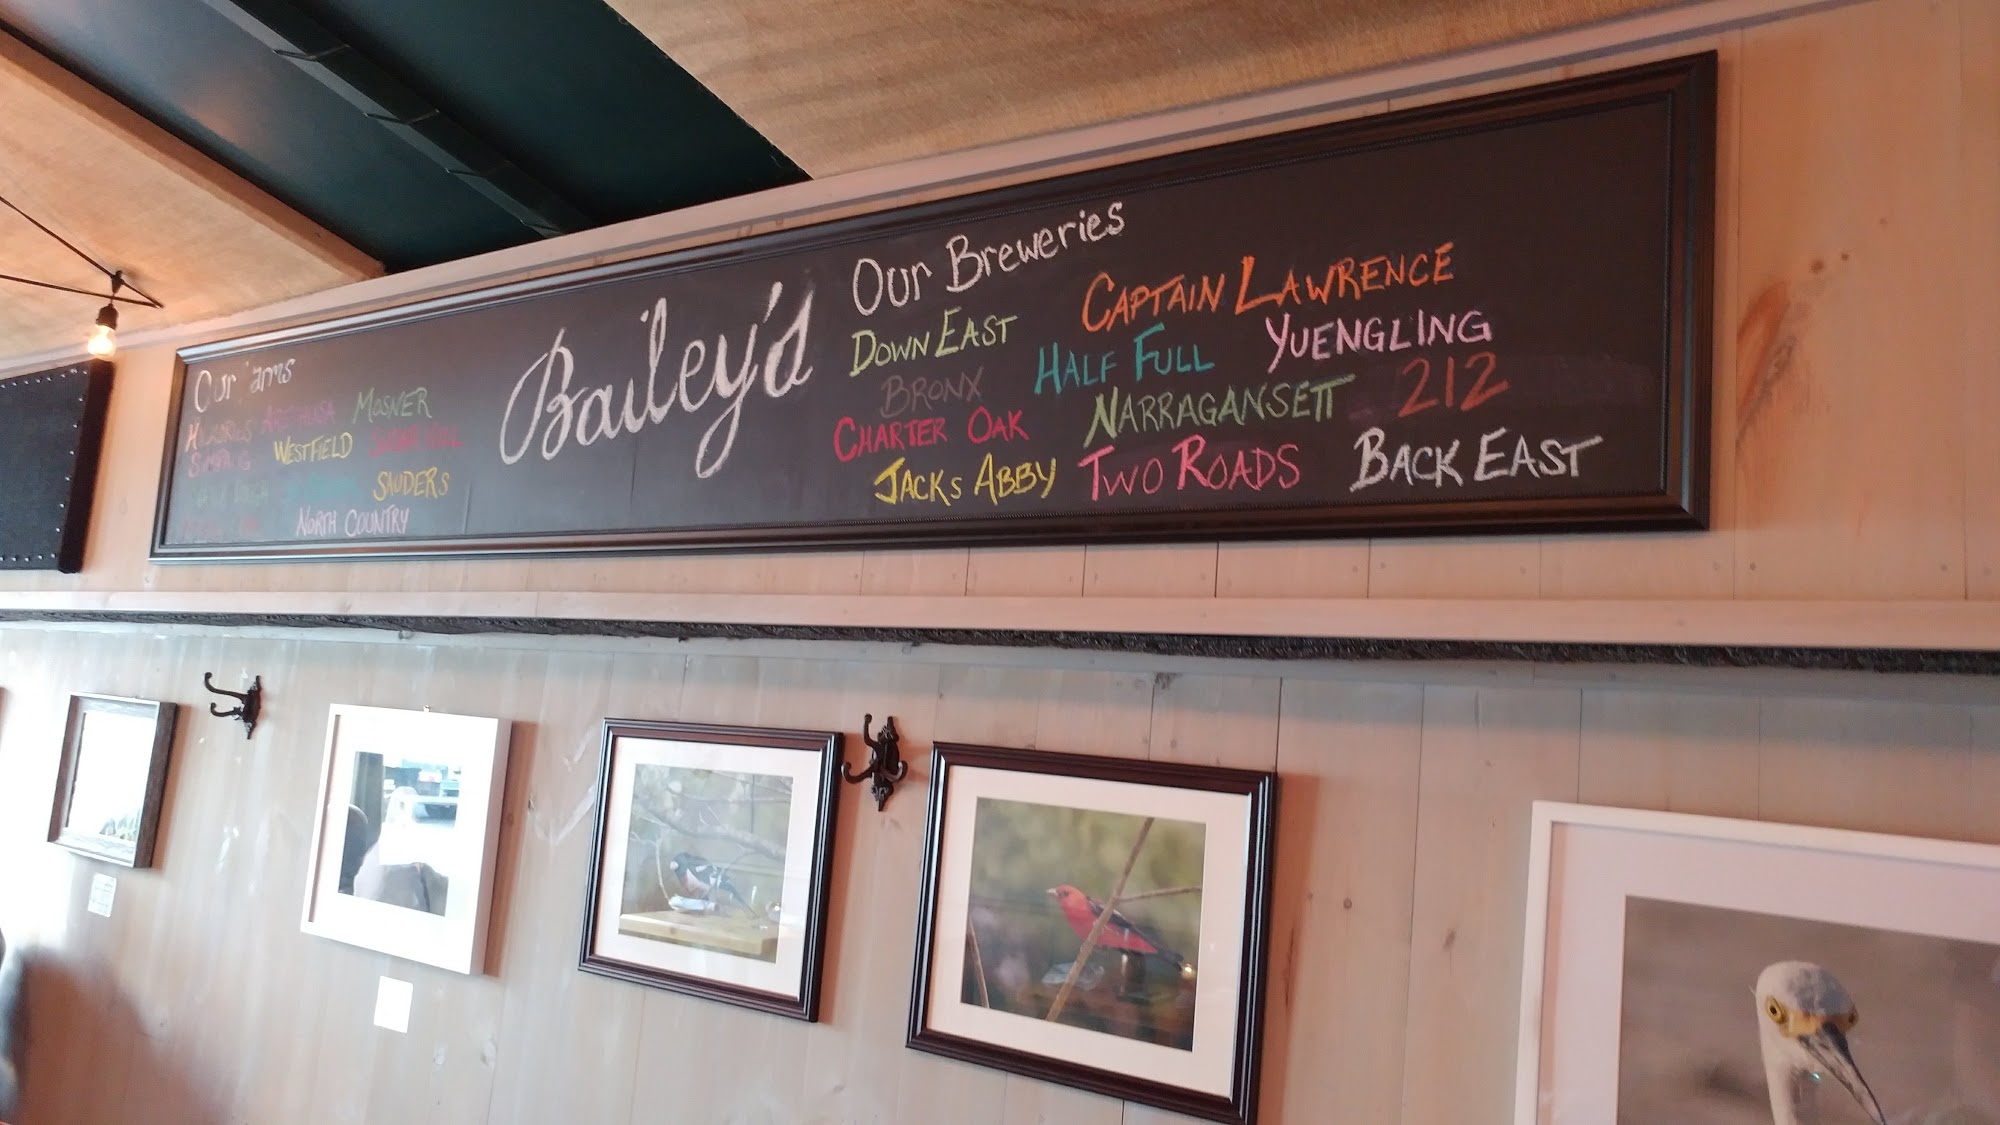 Our 'arms
ARETHUSA MOSNER
WESTFIELD SUGAR HILL
SAUDERS
NORTH COUNTRY
Bailey's
Our Breweries
DOWN EAST CAPTAIN LAWRENCE
BRONX HALF FULL YUENGLING
CHARTER OAK NARRAGANSETT 212
JACKS ABBY TWO ROADS BACK EAST